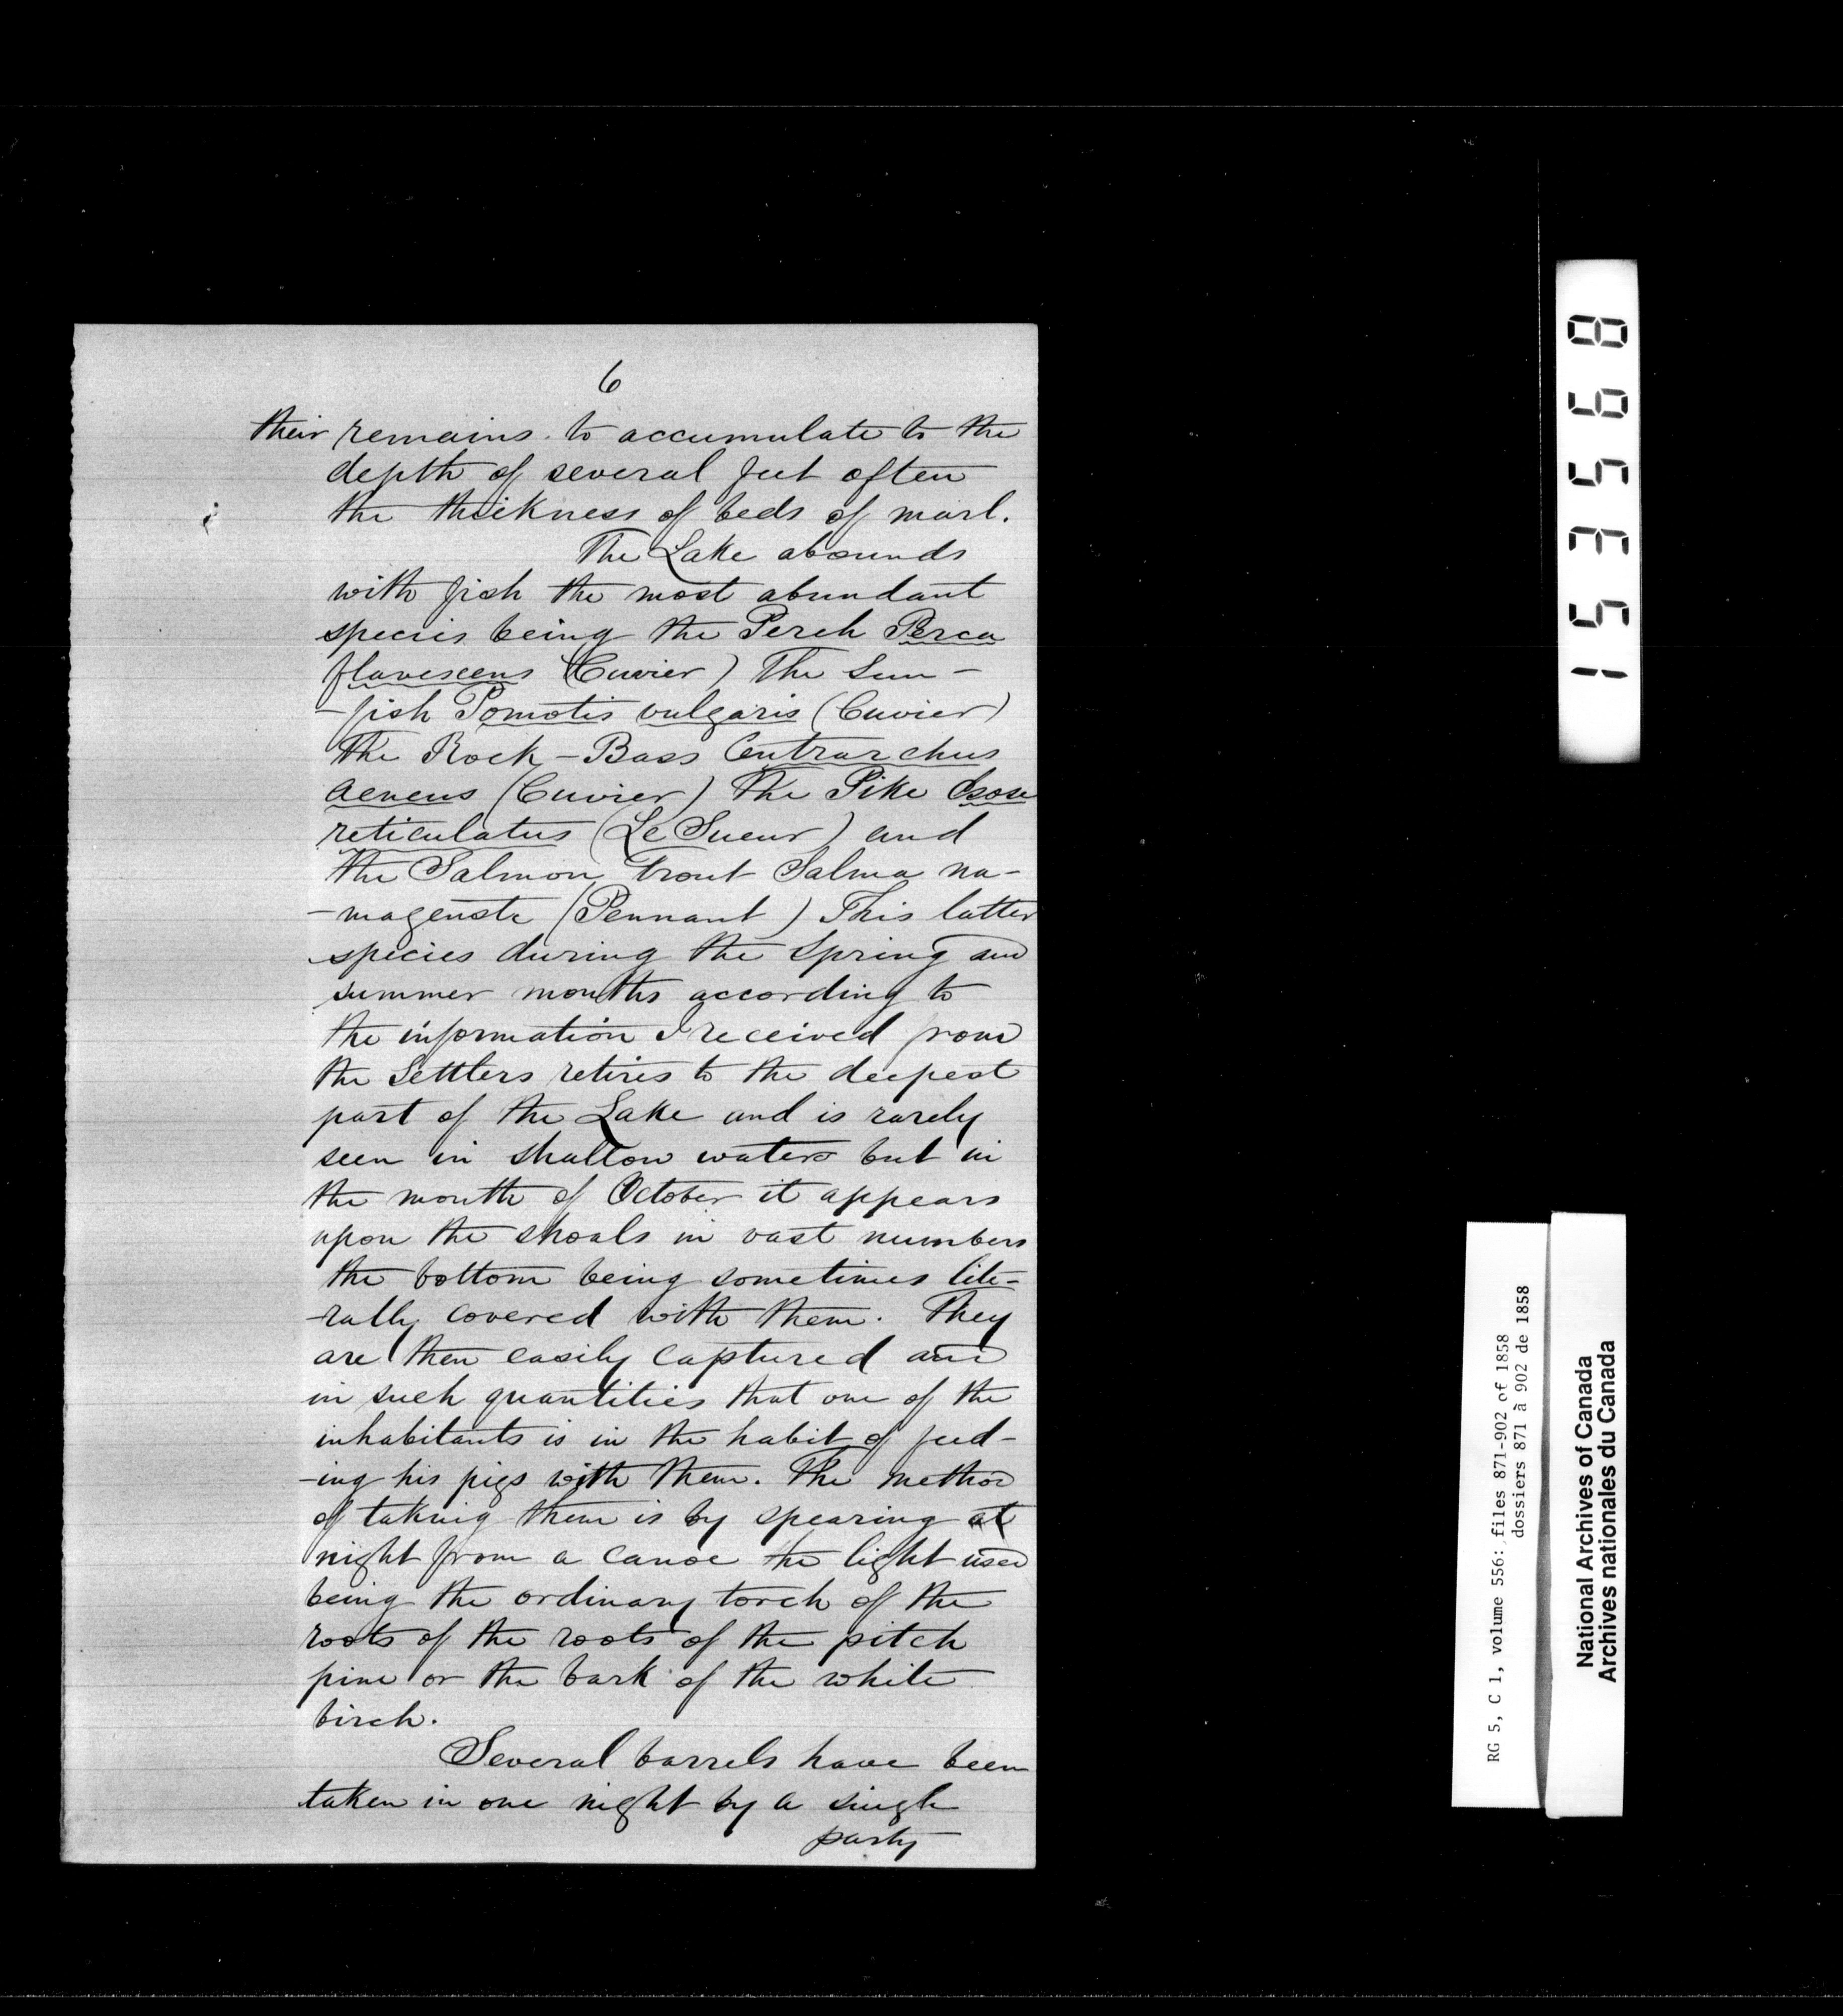 6
their remains to accumulate to the
depth of several feet often
the thickness of beds of marl.
The Lake abounds
with fish the most abundant
species being the Perch Perca
flavescens (Cuvier) The Sun-
-fish Pomotis vulgaris (Cuvier)
The Rock-Bass Centrarchus
aeneus (Cuvier) The Pike Esose
reticulatus (Le Sueur) and
the Salmon Trout Salma na-
-magenste (Pennant) This latter
species during the Spring and
summer months according to
the information I received from
the Settlers retires to the deepest
part of the Lake and is rarely
seen in shallow waters but in
the month of October it appears
upon the shoals in vast numbers
the bottom being sometimes lite-
-rally covered with them. They
are then easily captured and
in such quantities that one of the
inhabitants is in the habit of feed-
-ing his pigs with them. The method
of taking them is by spearing at
night from a canoe the light used
being the ordinary torch of the
roots of the roots of the pitch
pine or the bark of the white
birch.
Several barrels have been
taken in one night by a single
party
153568
RG 5, C 1, volume 556: files 871-902 of 1858
dossiers 871 à 902 de 1858
National Archives of Canada
Archives nationales du Canada